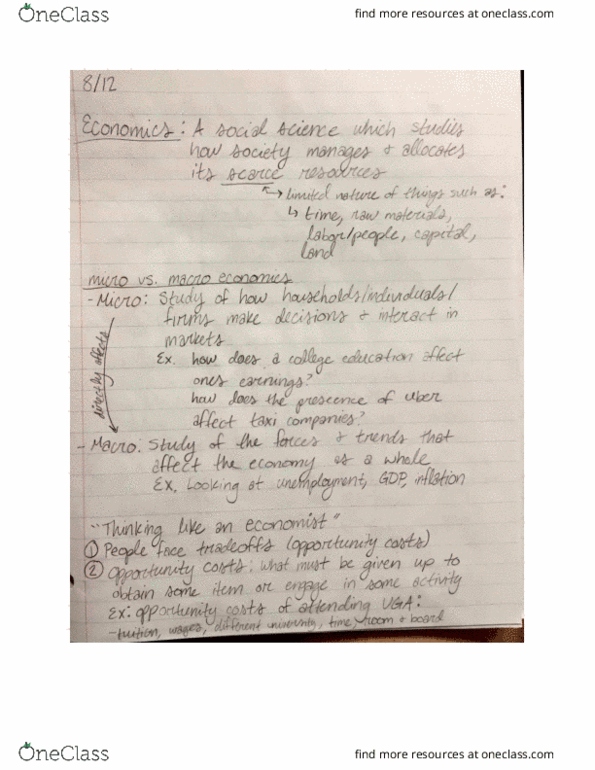 OneClass
find more resources at oneclass.com
8/12
Economics: A social science which studies
how society manages & allocates
its scarce resources
↳ limited nature of things such as:
↳ time, raw materials,
labor/people, capital,
land
micro vs. macro economics
- Micro: Study of how households/individuals/
firms make decisions & interact in
markets
Ex. how does a college education affect
ones earnings?
how does the prescence of uber
affect taxi companies?
directly affects
- Macro: Study of the forces & trends that
affect the economy as a whole
Ex. Looking at unemployment, GDP, inflation
"Thinking like an economist"
① People face tradeoffs (opportunity costs)
② Opportunity costs: what must be given up to
obtain some item or engage in some activity
Ex: opportunity costs of attending UGA:
-tuition, wages, different university, time, room & board
OneClass
find more resources at oneclass.com